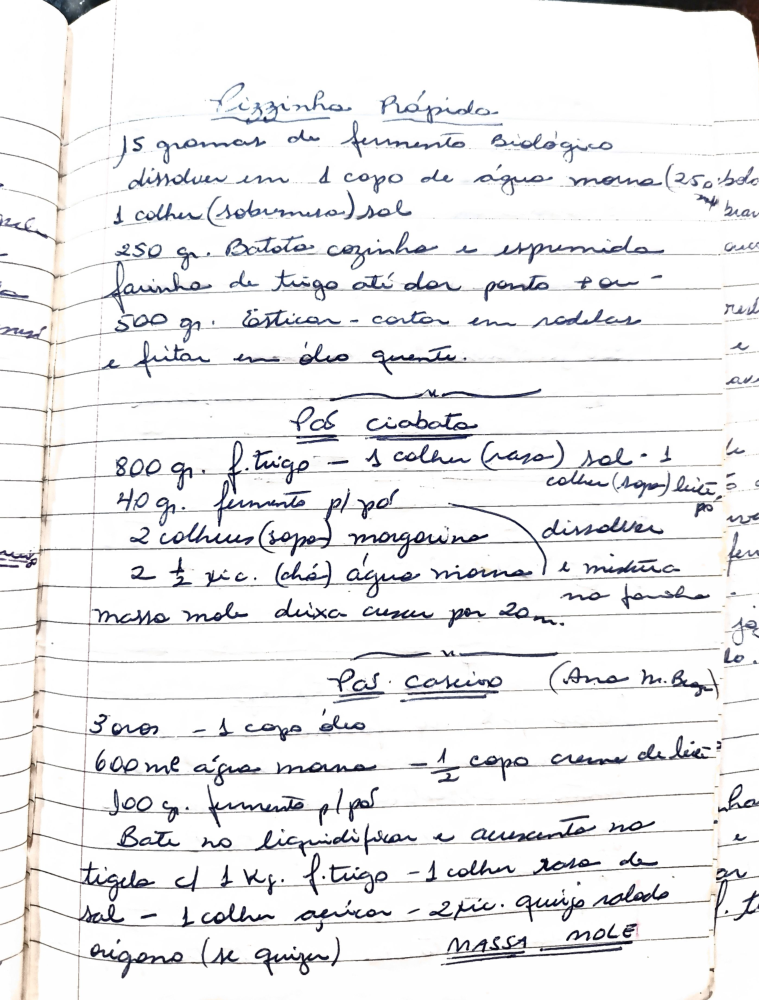 Pizzinha Rápida
15 gramas de fermento Biológico
dissolver em 1 copo de água morna (250
1 colher (sobremesa) sal
250 gr. Batata cozinha e espremida
farinha de trigo até dar ponto + ou -
500 gr. Esticar - cortar em rodelas
e fritar em óleo quente.
Pão ciabata
800 gr. f. trigo - 1 colher (rasa) sal - 1
colher (sopa) leite
pó
40 gr. fermento p/ pão
2 colheres (sopa) margarina dissolver
2 1/2 xic. (chá) água morna e mistura
na farinha
massa mole deixa crescer por 20 m.
Pão caseiro (Ana M. Braga)
3 ovos - 1 copo óleo
600 ml água morna - 1/2 copo creme de leite
100 g. fermento p/ pão
Bate no liquidificar e acrescenta na
tigela c/ 1 Kg. f. trigo - 1 colher rasa de
sal - 1 colher açúcar - 2 xic. queijo ralado
orégano (se quizer) MASSA MOLE